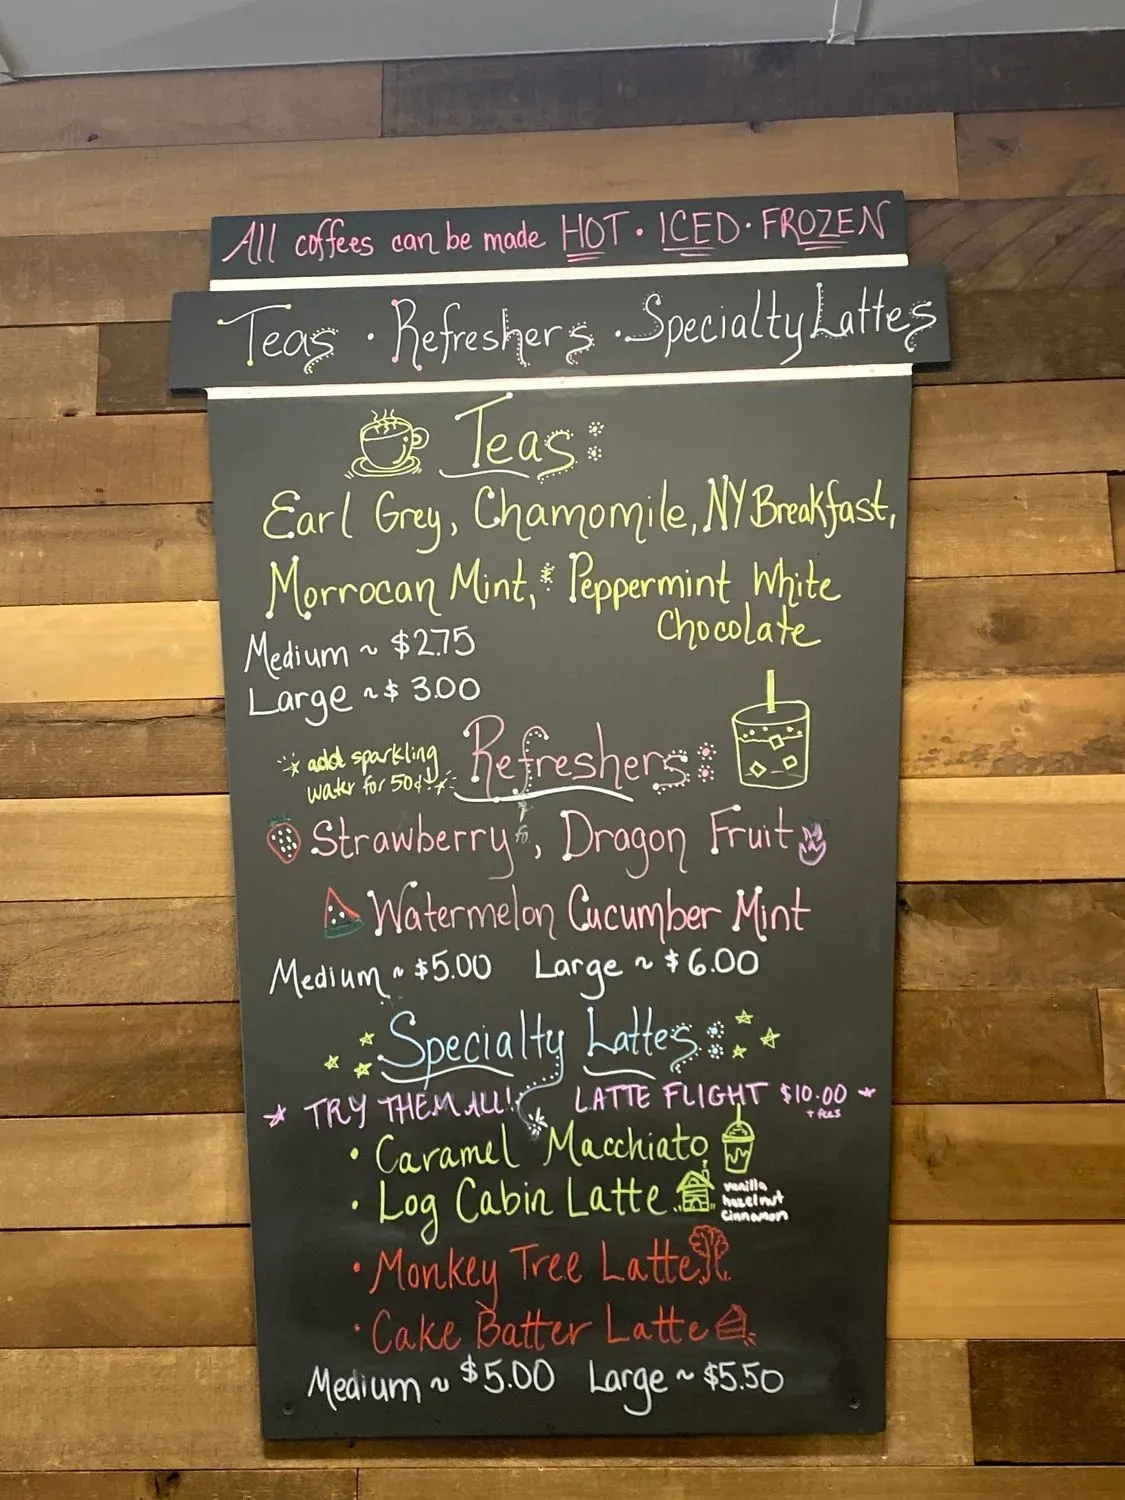 All coffees can be made HOT · ICED · FROZEN
Teas · Refreshers · Specialty Lattes
Teas:
Earl Grey, Chamomile, NY Breakfast,
Morrocan Mint, & Peppermint White
Chocolate
Medium ~ $2.75
Large ~ $3.00
add sparkling
water for 50¢
Refreshers:
Strawberry, Dragon Fruit
Watermelon Cucumber Mint
Medium ~ $5.00 Large ~ $6.00
Specialty Lattes:
TRY THEM ALL! LATTE FLIGHT $10.00
+ fees
• Caramel Macchiato
• Log Cabin Latte
vanilla
hazelnut
cinnamon
• Monkey Tree Latte
• Cake Batter Latte
Medium ~ $5.00 Large ~ $5.50